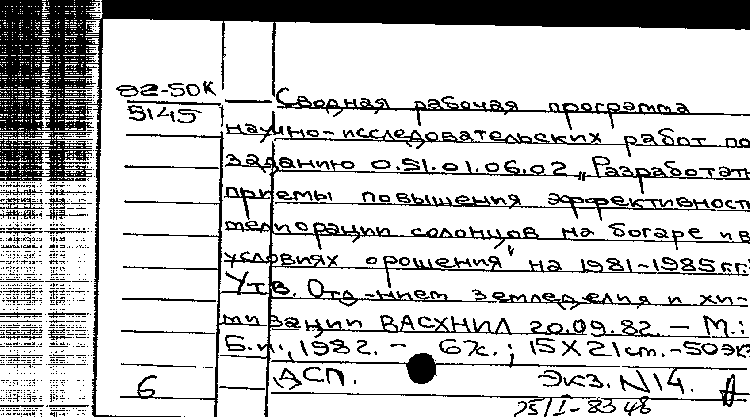 82-50К
5145
Сводная рабочая программа
научно-исследовательских работ по
заданию 0.51.01.06.02 „Разработать
приемы повышения эффективност
мелиорации солонцов на богаре и в
условиях орошения" на 1981-1985 г.г.
Утв. Отд-нием земледелия и хи-
мизации ВАСХНИЛ 20.09.82. - М.:
Б.и., 1982. - 67с.; 15х21см. - 50 эк
6
ДСП. Экз. N14.
25/I-83 48